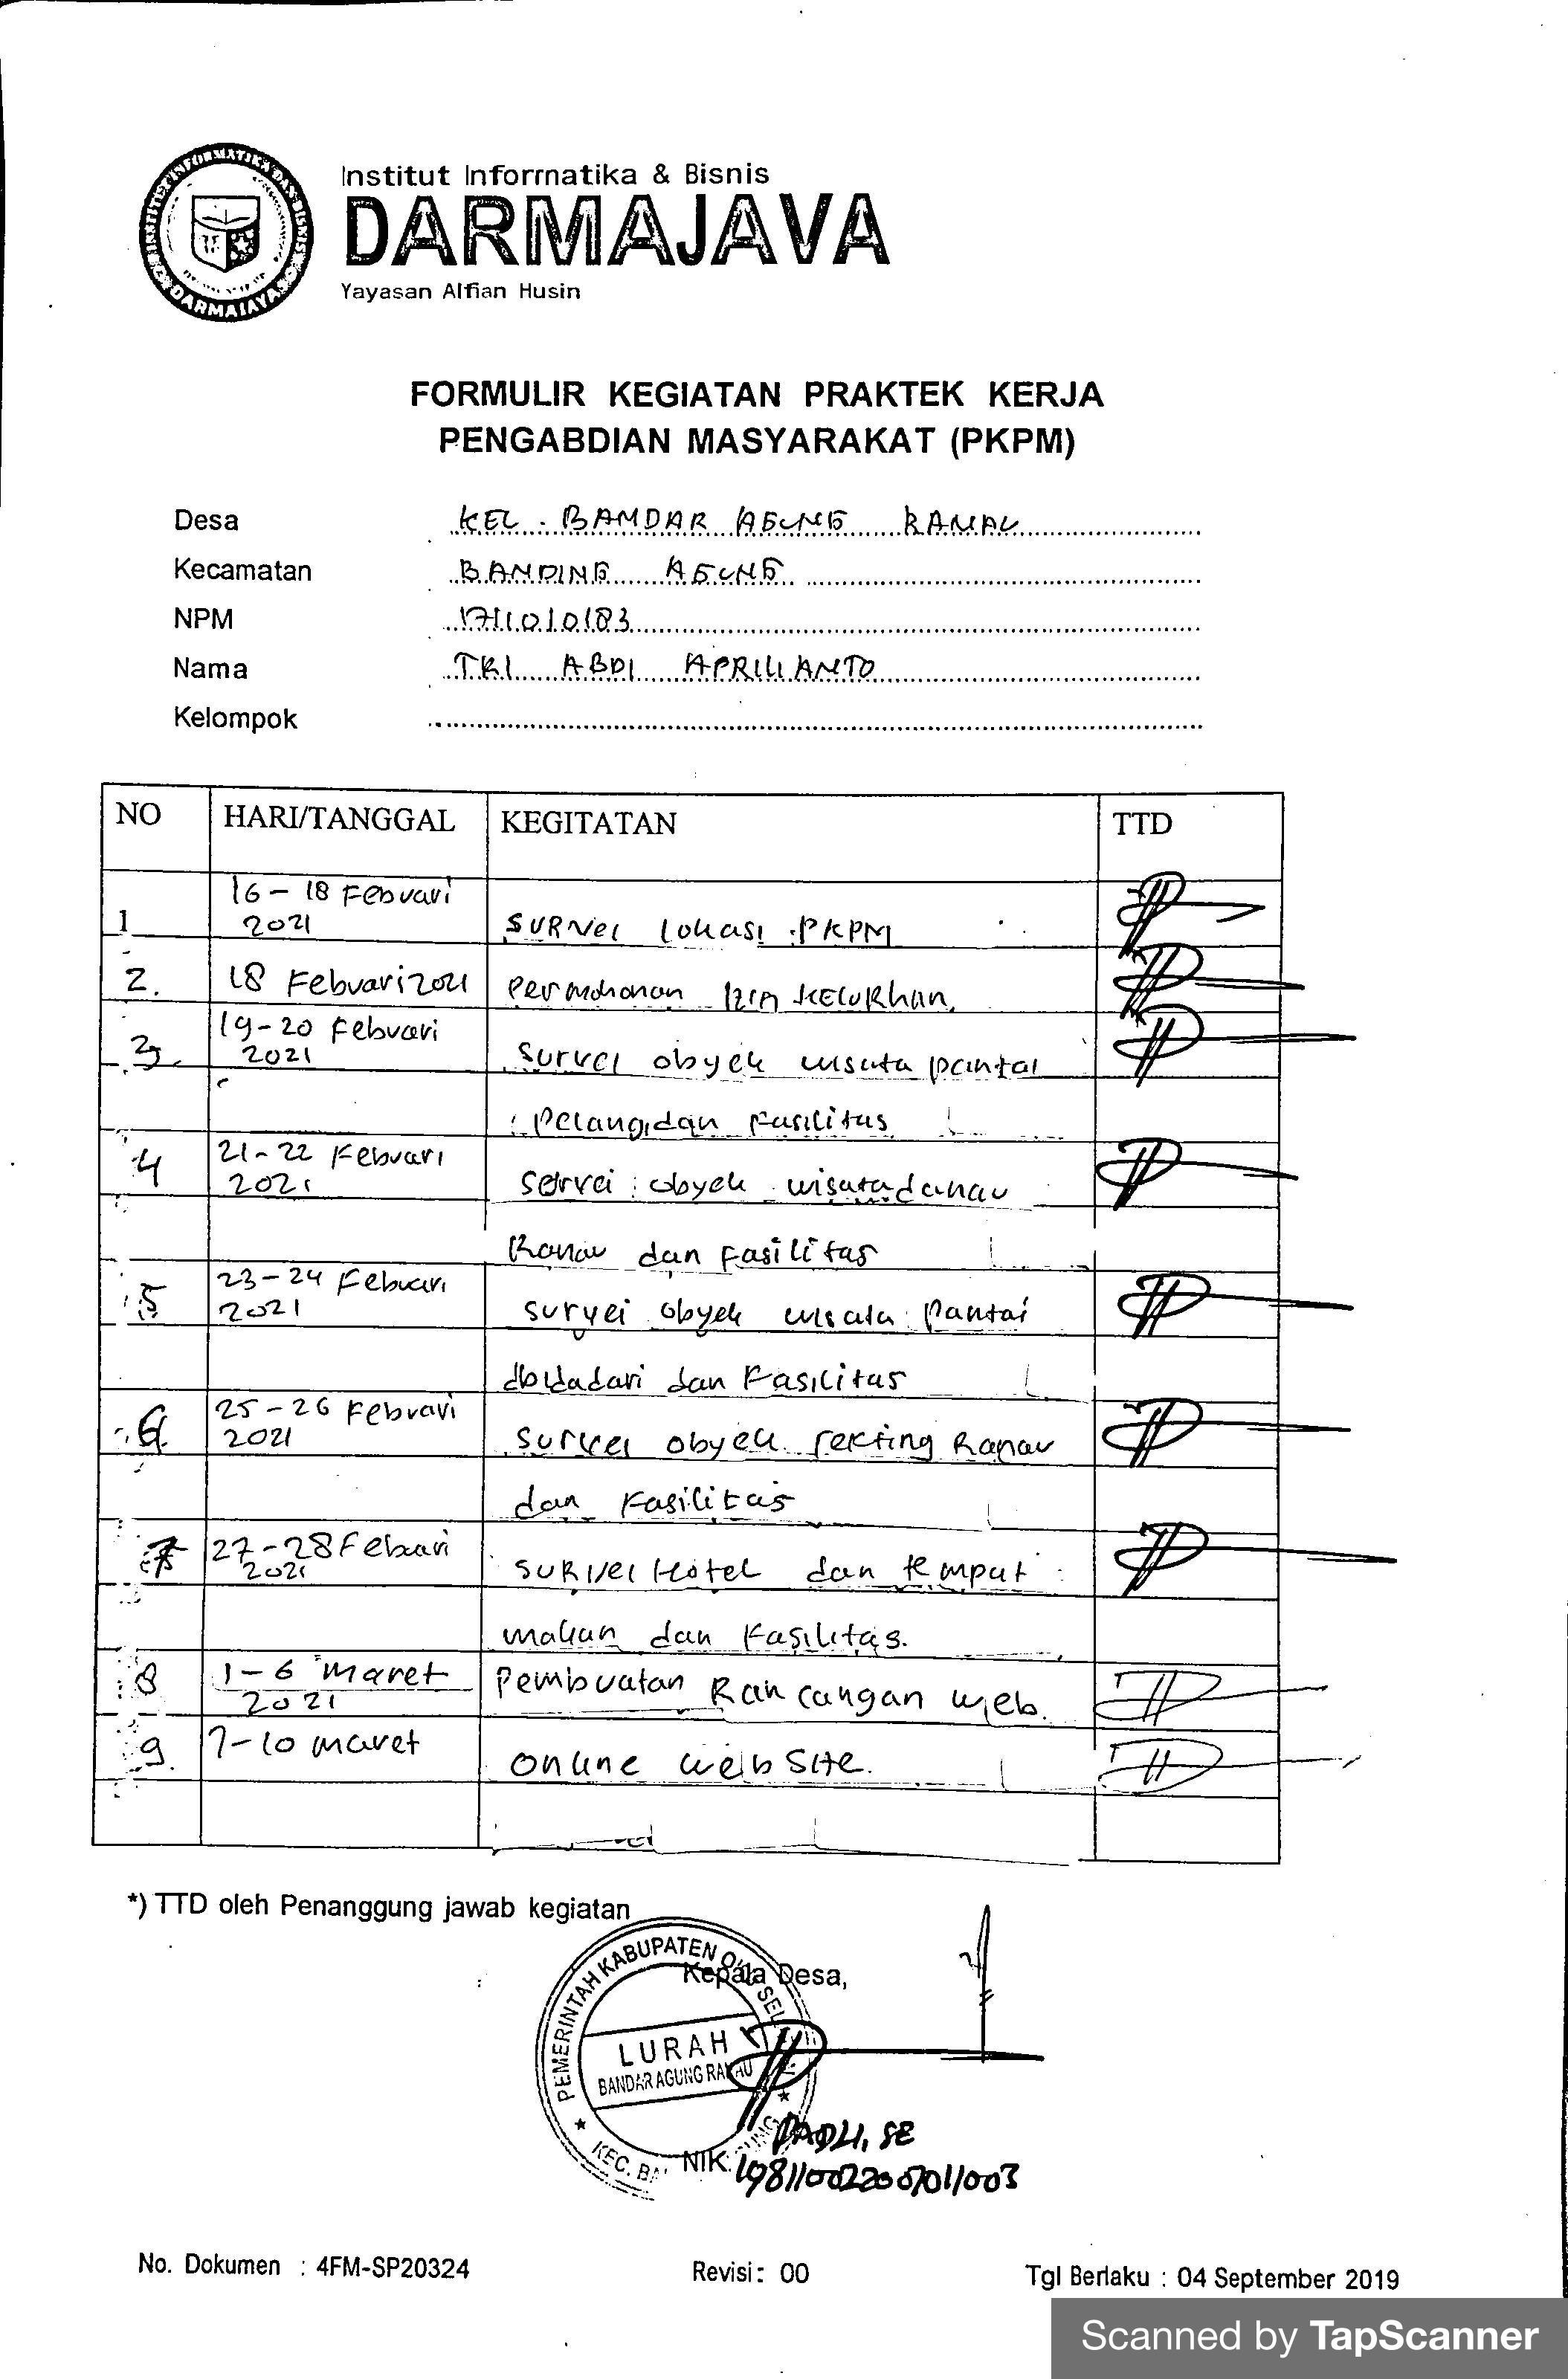 INSTITUT INFORMATIKA DAN BISNIS
DARMAJAYA
Institut Inforrnatika & Bisnis
DARMAJAVA
Yayasan Alfian Husin
FORMULIR KEGIATAN PRAKTEK KERJA
PENGABDIAN MASYARAKAT (PKPM)
Desa KEL. BANDAR AGUNG RANAU
Kecamatan BANDING AGUNG
NPM 1711010183
Nama TRI ABDI APRILIANTO
Kelompok
NO HARI/TANGGAL KEGITATAN TTD
16 - 18 Febuari
1 2021 SURVEI Lokasi PKPM
2. 18 Febuari 2021 Permohonan Izin KELUKhan
19-20 Febuari
3. 2021 Survei obyek wisata pantai
Pelangi dan Fasilitas
21-22 Febuari
4 2021 servei obyek wisata danau
Ranau dan Fasilitas
23-24 Febuari
5 2021 survei obyek wisata Pantai
bidadari dan Fasilitas
25-26 Febuari
6 2021 survei obyek rekting Ranau
dan Fasilitas
27-28 Febuari
7 2021 SURVEI Hotel dan tempat
makan dan Fasilitas.
8 1-6 maret Pembuatan Rancangan web.
2021
9. 7-10 maret Online web Site.
*) TTD oleh Penanggung jawab kegiatan
Kepala Desa,
PEMERINTAH KABUPATEN OKU SEL
LURAH
BANDAR AGUNG RANAU
KEC. BA
PADLI, SE
NIK. 198110022007011003
No. Dokumen : 4FM-SP20324 Revisi : 00 Tgl Berlaku : 04 September 2019
Scanned by TapScanner